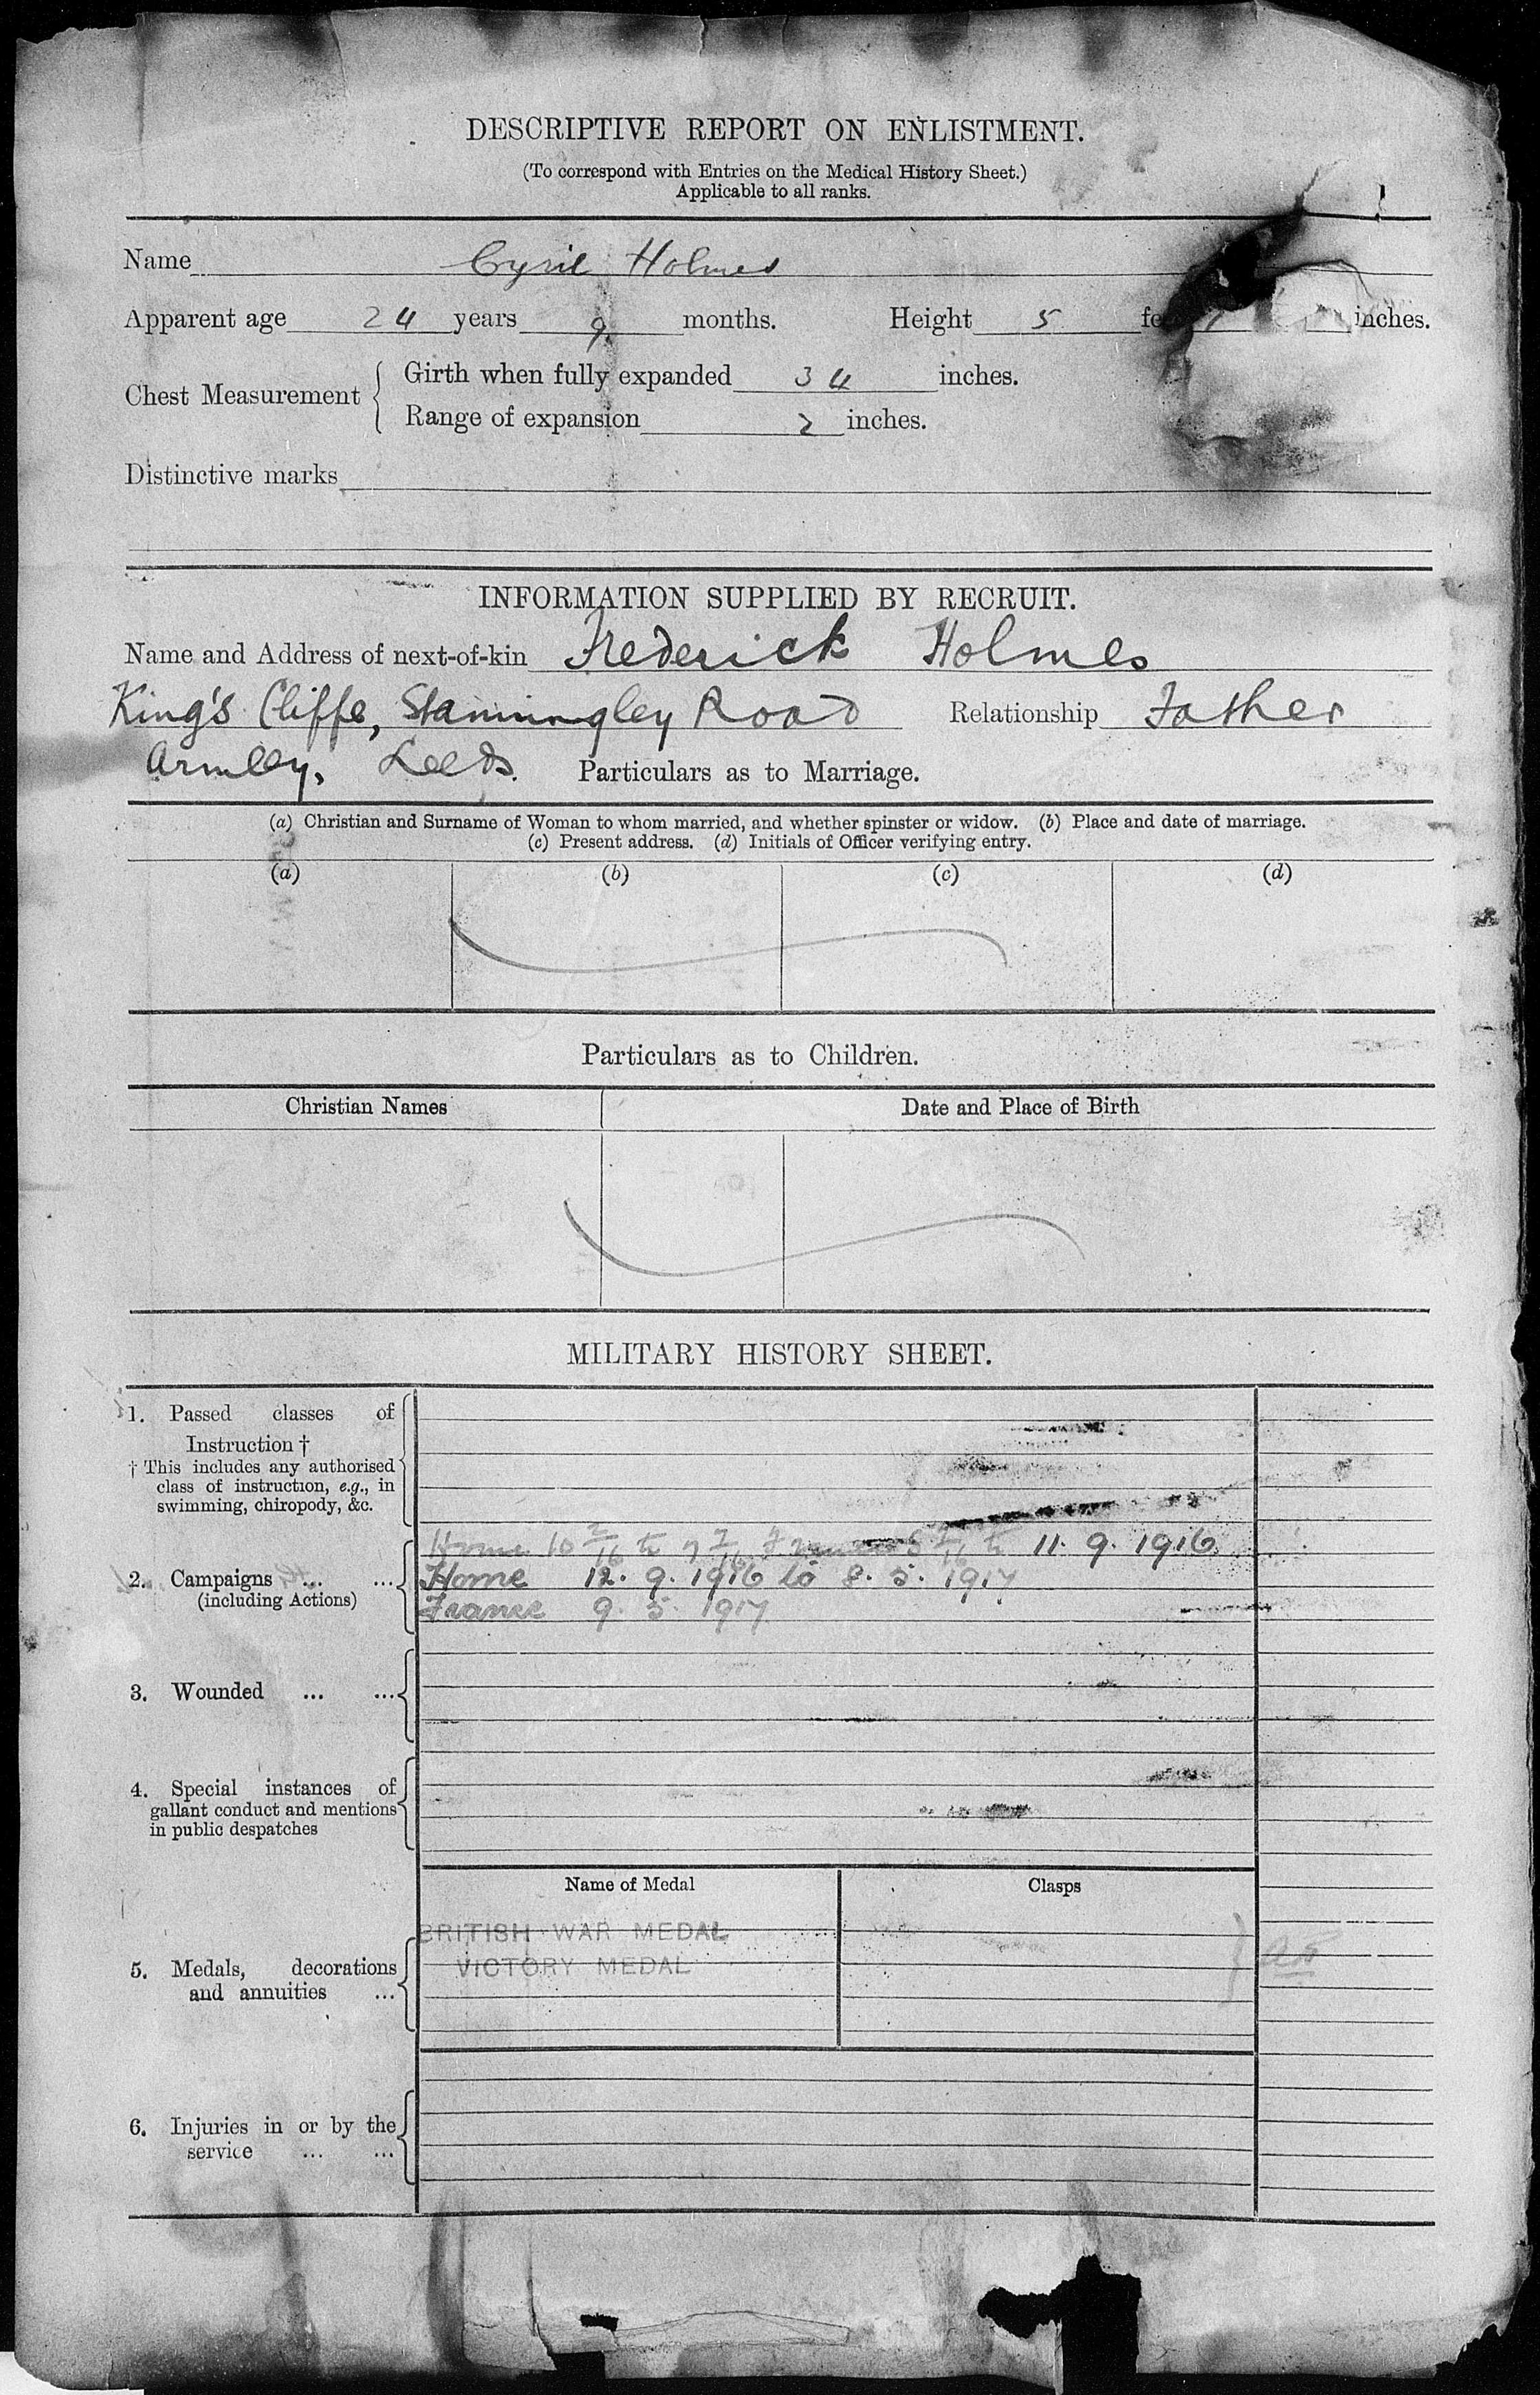 DESCRIPTIVE REPORT ON ENLISTMENT.
(To correspond with Entries on the Medical History Sheet.)
Applicable to all ranks.
Name Cyril Holmes
Apparent age 24 years 9 months. Height 5 inches.
Chest Measurement Girth when fully expanded 34 inches.
Range of expansion 2 inches.
Distinctive marks
INFORMATION SUPPLIED BY RECRUIT.
Name and Address of next-of-kin Frederick Holmes
King's Cliffe, Stanningley Road Relationship Father
Armley, Leeds. Particulars as to Marriage.
(a) Christian and Surname of Woman to whom married, and whether spinster or widow. (b) Place and date of marriage.
(c) Present address. (d) Initials of Officer verifying entry.
(a) (b) (c) (d)
Particulars as to Children.
Christian Names Date and Place of Birth
MILITARY HISTORY SHEET.
1. Passed classes of
Instruction †
† This includes any authorised
class of instruction, e.g., in
swimming, chiropody, &c.
Home 11. 9. 1916
2. Campaigns ... ... Home 12. 9. 1916 to 8. 5. 1917
(including Actions) France 9. 5. 1917
3. Wounded ... ...
4. Special instances of
gallant conduct and mentions
in public despatches
Name of Medal Clasps
BRITISH WAR MEDAL
VICTORY MEDAL
5. Medals, decorations
and annuities ...
6. Injuries in or by the
service ... ...